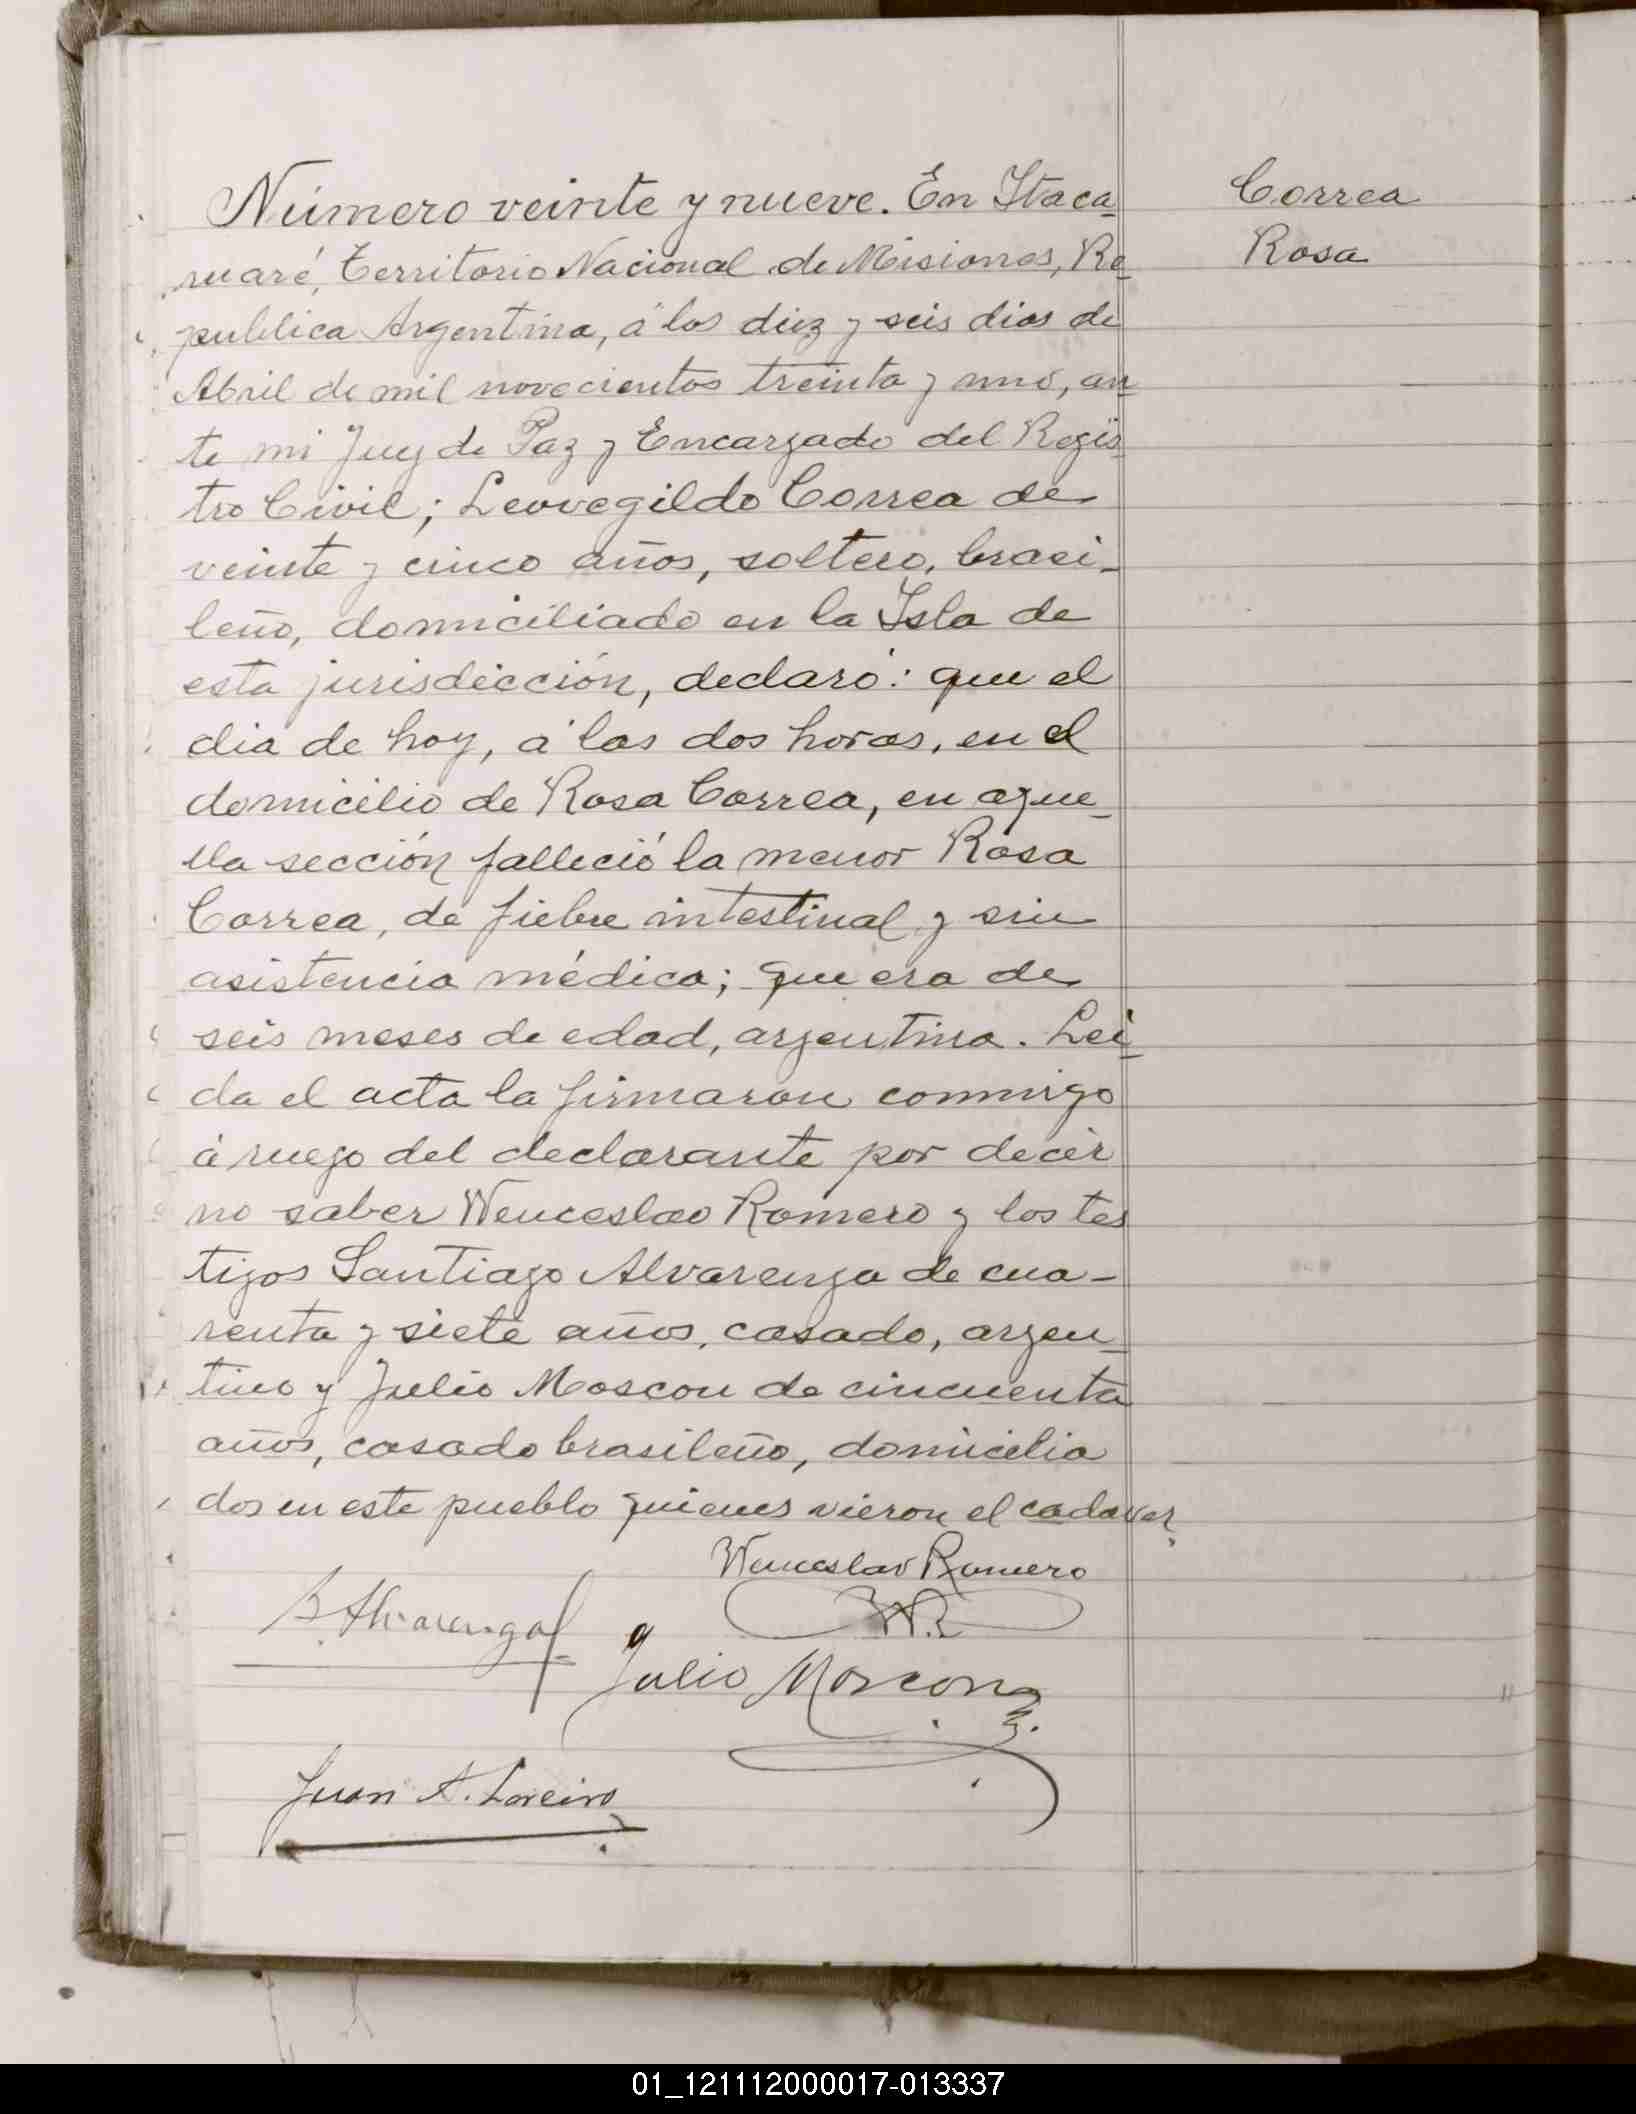 Número veinte y nueve. En Itaca-
ruaré, Territorio Nacional de Misiones, Re-
publica Argentina, á los diez y seis dias de
Abril de mil novecientos treinta y uno, an-
te mi Juez de Paz y Encargado del Regis-
tro Civil; Leovegildo Correa de
veinte y cinco años, soltero, brasi-
leño, domiciliado en la Isla de
esta jurisdicción, declaró: que el
dia de hoy, á las dos horas, en el
domicilio de Rosa Correa, en aque-
lla sección falleció la menor Rosa
Correa, de fiebre intestinal y sin
asistencia médica; que era de
seis meses de edad, argentina. Lei-
da el acta la firmaron conmigo
á ruego del declarante por decir
no saber Wenceslao Romero y los tes
tigos Santiago Alvarenga de cua-
renta y siete años, casado, argen-
tino y Julio Moscon de cincuenta
años, casado brasileño, domicilia
dos en este pueblo quienes vieron el cadaver.
Wenceslao Romero
W.R.
S. Alvarenga
Julio Moscon
Juan A. Loreiro
Correa
Rosa
01_121112000017-013337